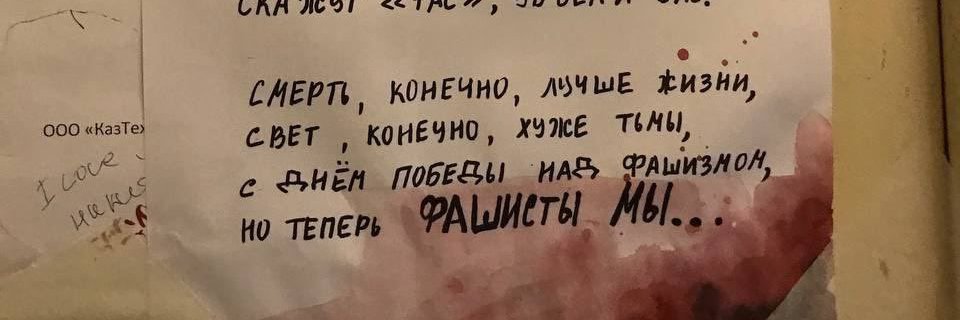 СМЕРТЬ, КОНЕЧНО, ЛУЧШЕ ЖИЗНИ,
СВЕТ, КОНЕЧНО, ХУЖЕ ТЬМЫ,
С ДНЁМ ПОБЕДЫ НАД ФАШИЗМОМ,
НО ТЕПЕРЬ ФАШИСТЫ МЫ...
ООО «КазТе
I